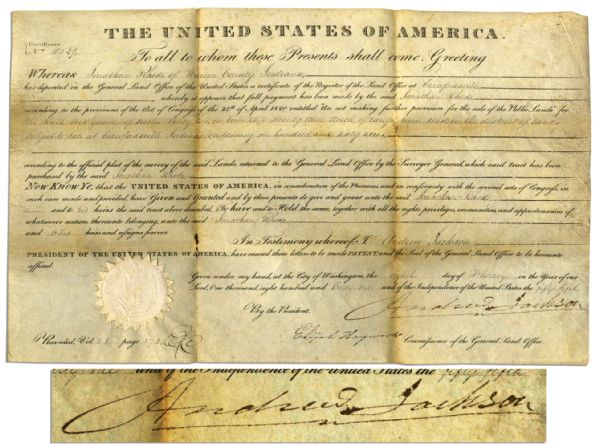 THE UNITED STATES OF AMERICA.
Certificate
To all to whom these Presents shall come, Greeting
Whereas Jonathan of Warren County Indiana,
has deposited in the General Land Office of the United States a certificate of the Register of the Land Office at Crawfordsville
whereby it appears that full payment has been made by the said Jonathan
according to the provisions of the Act of Congress of the 24th of April 1820 entitled "An act making further provision for the sale of the Public Lands" for
quarter of section in township twenty three north of range in the district of lands
subject to sale at Crawfordsville Indiana containing one hundred and sixty acres
according to the official plat of the survey of the said Lands, returned to the General Land Office by the Surveyor General, which said tract has been
purchased by the said Jonathan
Now Know Ye, that the UNITED STATES OF AMERICA, in consideration of the Premises, and in conformity with the several acts of Congress, in
such case made and provided, have Given and Granted and by these presents do give and grant unto the said Jonathan
and to his heirs the said tract above described, To have and to Hold the same, together with all the rights, privileges, immunities, and appurtenances of
whatsoever nature, thereunto belonging, unto the said Jonathan
and to his heirs and assigns forever
In Testimony whereof I Andrew Jackson
PRESIDENT OF THE UNITED STATES OF AMERICA, have caused these letters to be made PATENT, and the Seal of the General Land Office to be hereunto
affixed.
Given under my hand, at the City of Washington, the eighth day of February in the Year of our
Lord, One thousand, eight hundred and thirty one and of the Independence of the United States the fifty fifth
By the President. Andrew Jackson
Elijah Hayward Commissioner of the General Land Office.
Recorded, Vol. page
and of the Independence of the United States the fifty fifth
Andrew Jackson